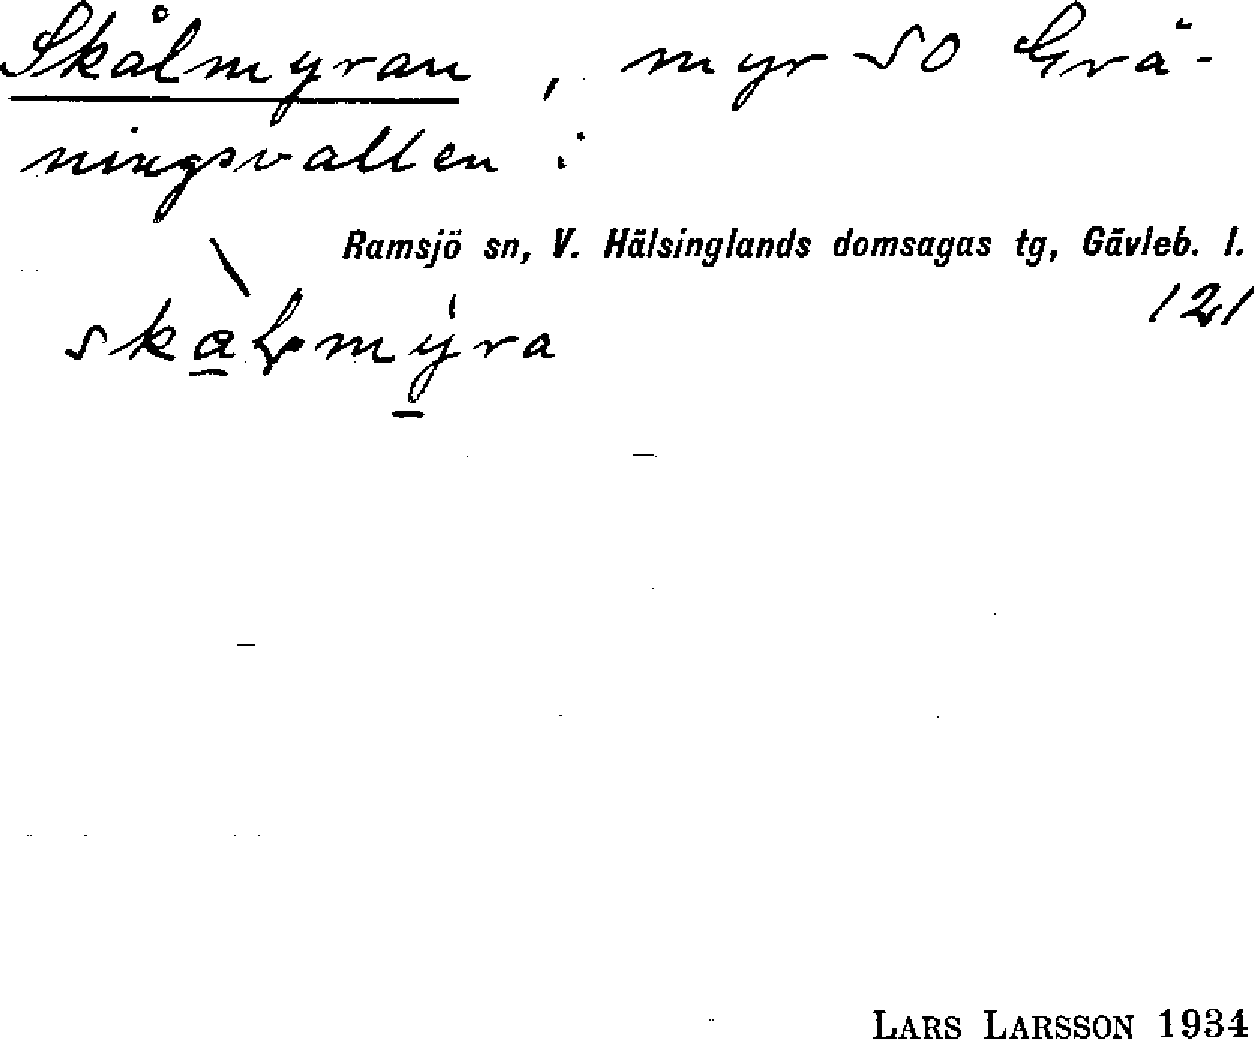 Skålmyran, myr SO Grä-
ningsvallen i
Ramsjö sn, V. Hälsinglands domsagas tg, Gävleb. l.
121
LARS LARSSON 1934